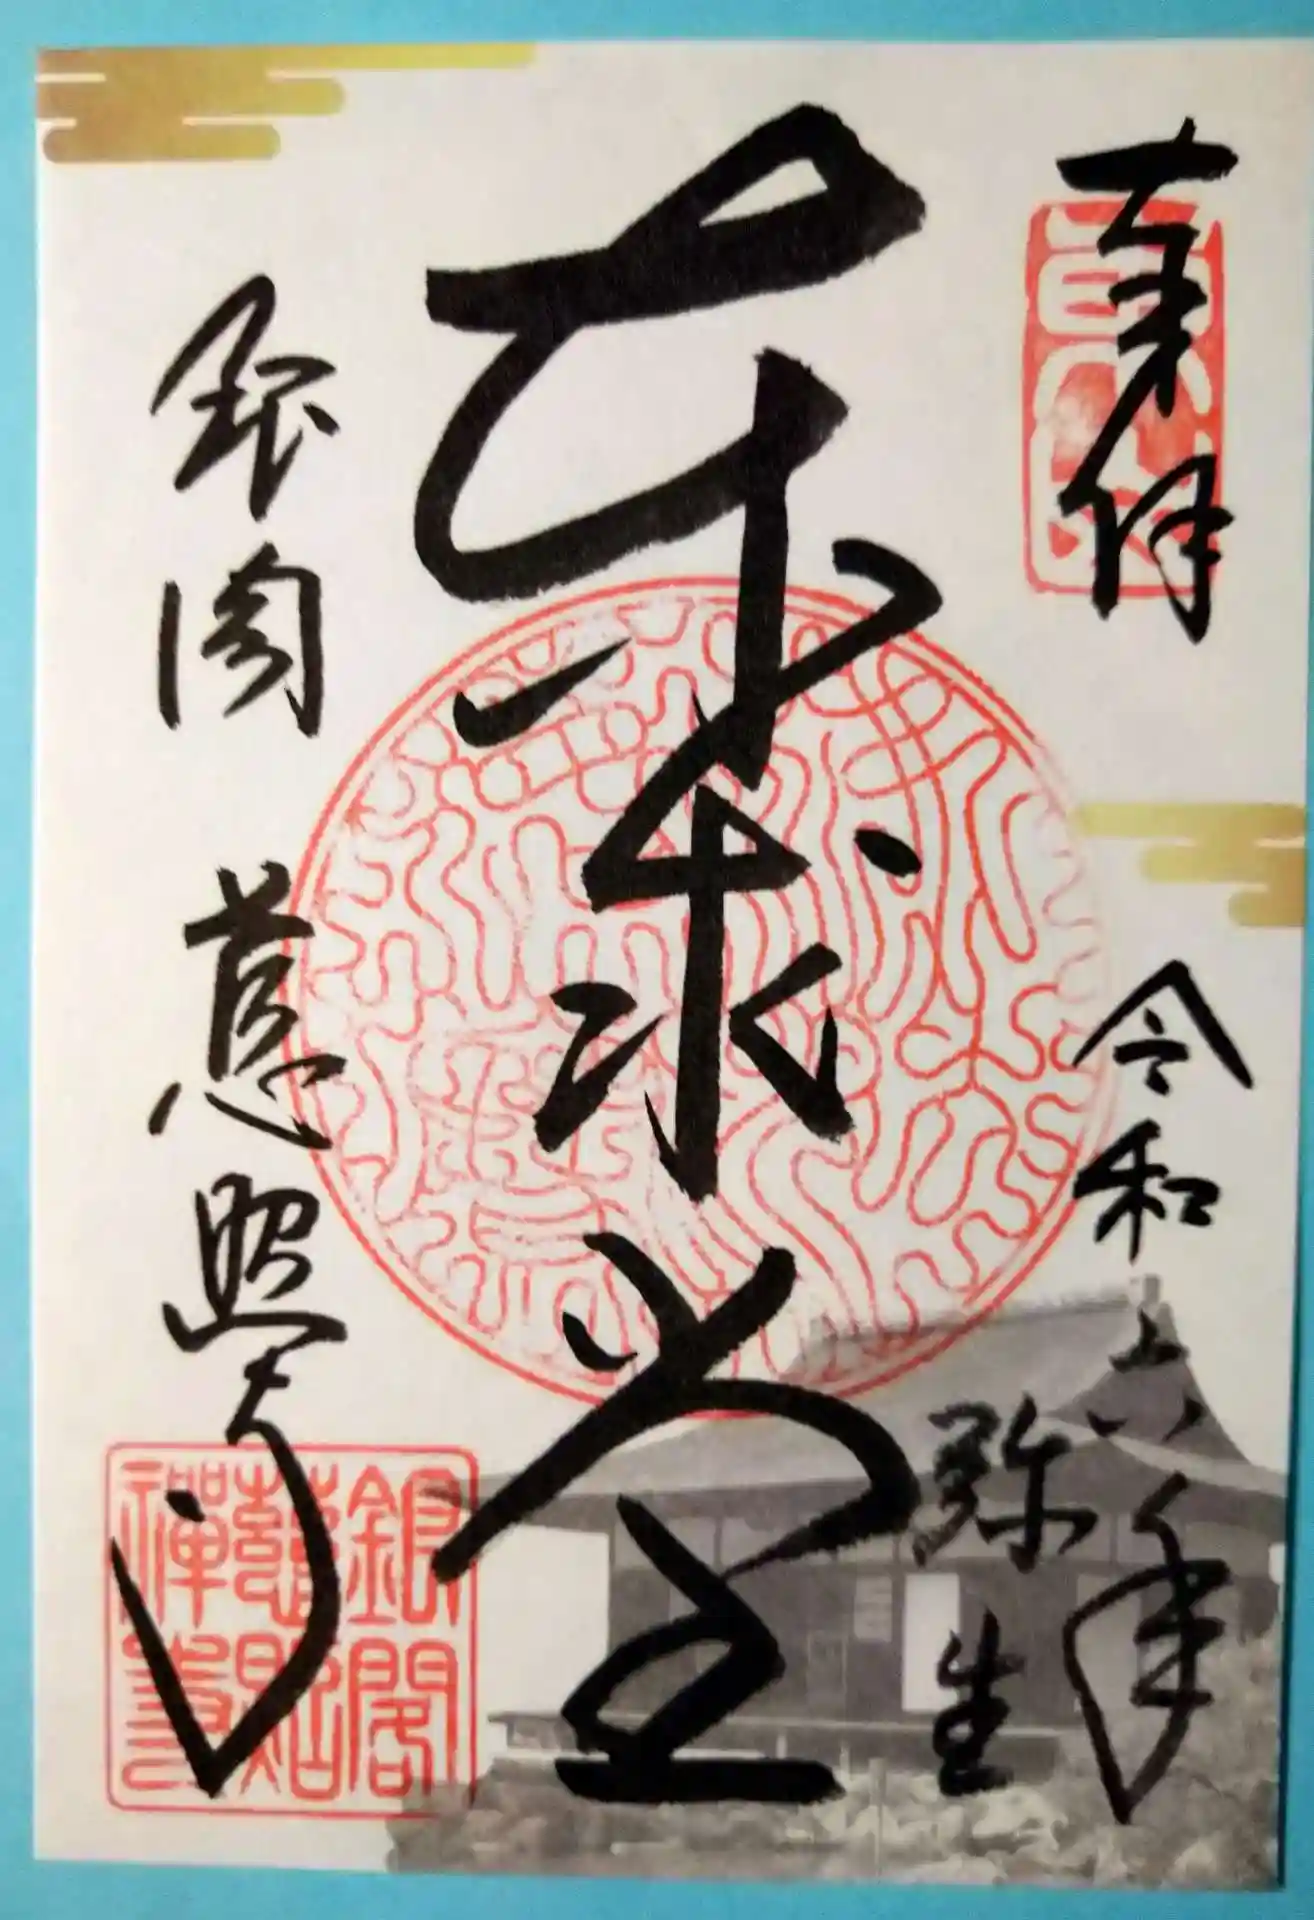 奉拝
令和六年
弥生
東求堂
銀閣 慈照寺
銀閣
慈照
禪寺